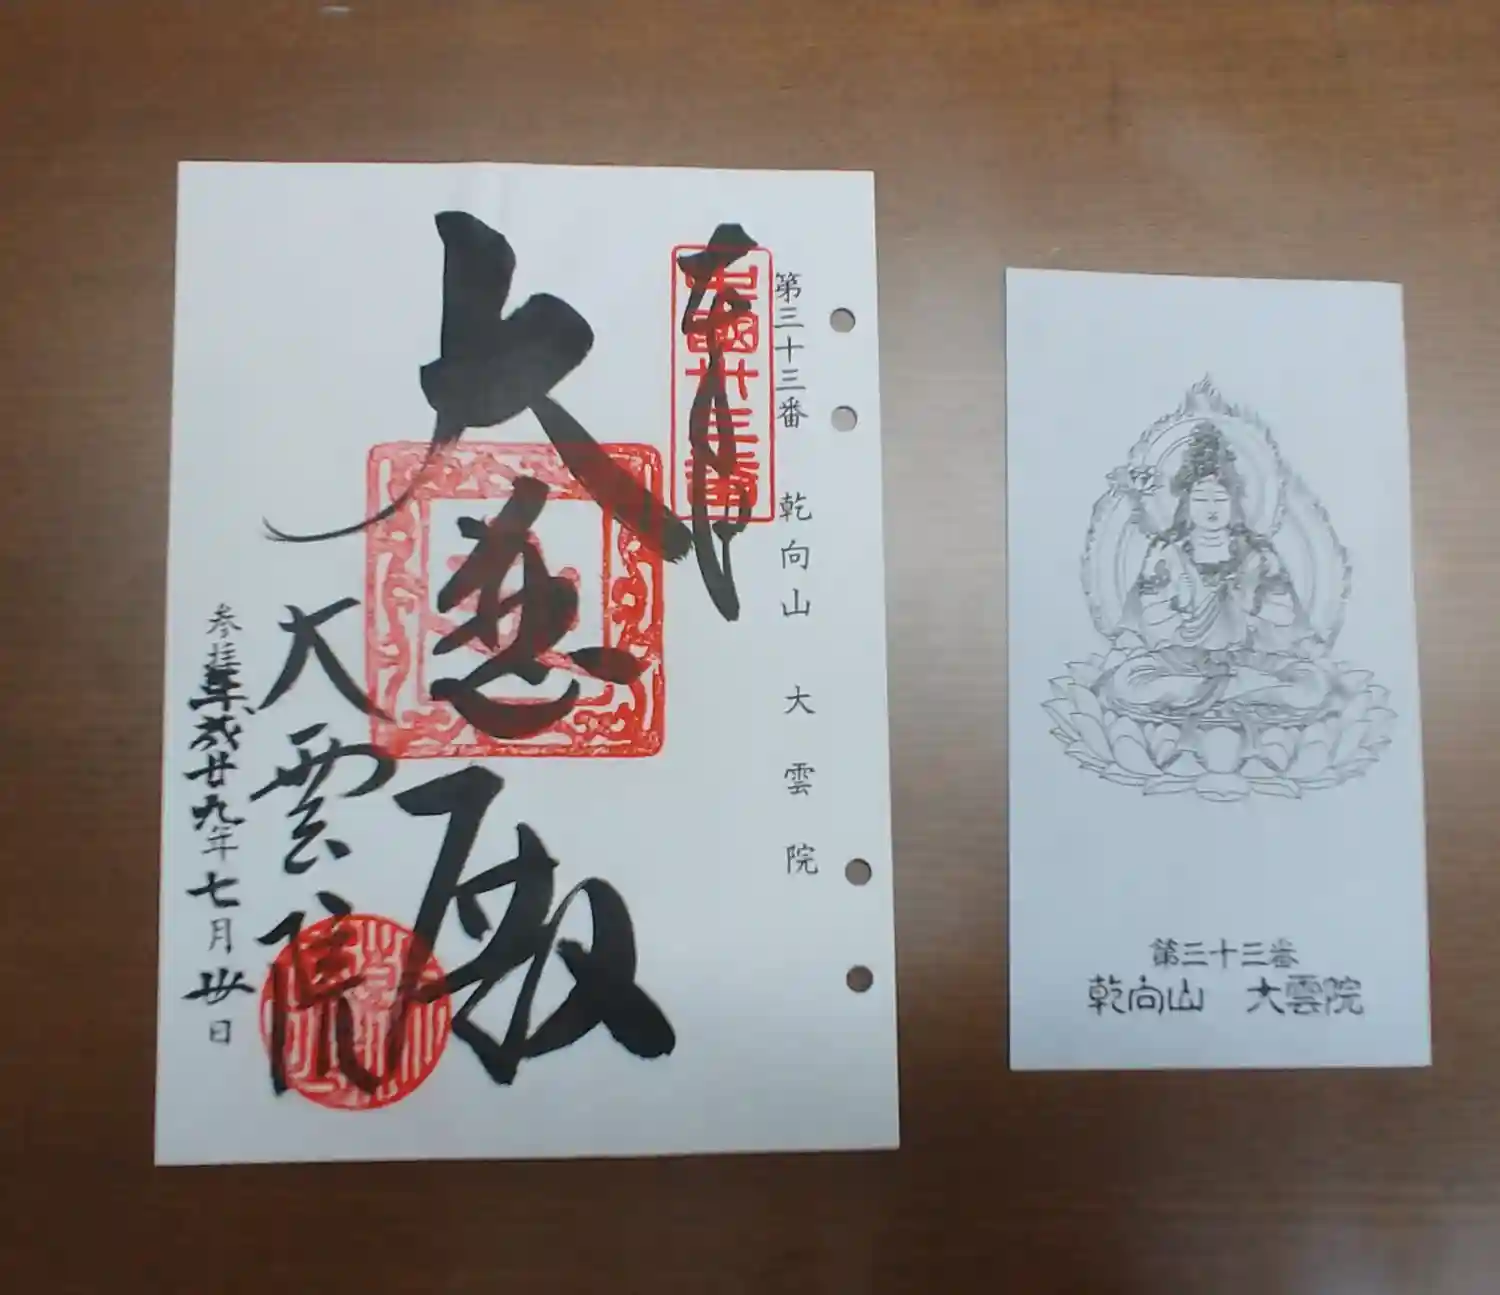 第三十三番 乾向山 大雲院
奉拝
中國卅三番
大悲殿
大雲院
参拝平成廿九年七月卅日
第三十三番
乾向山 大雲院